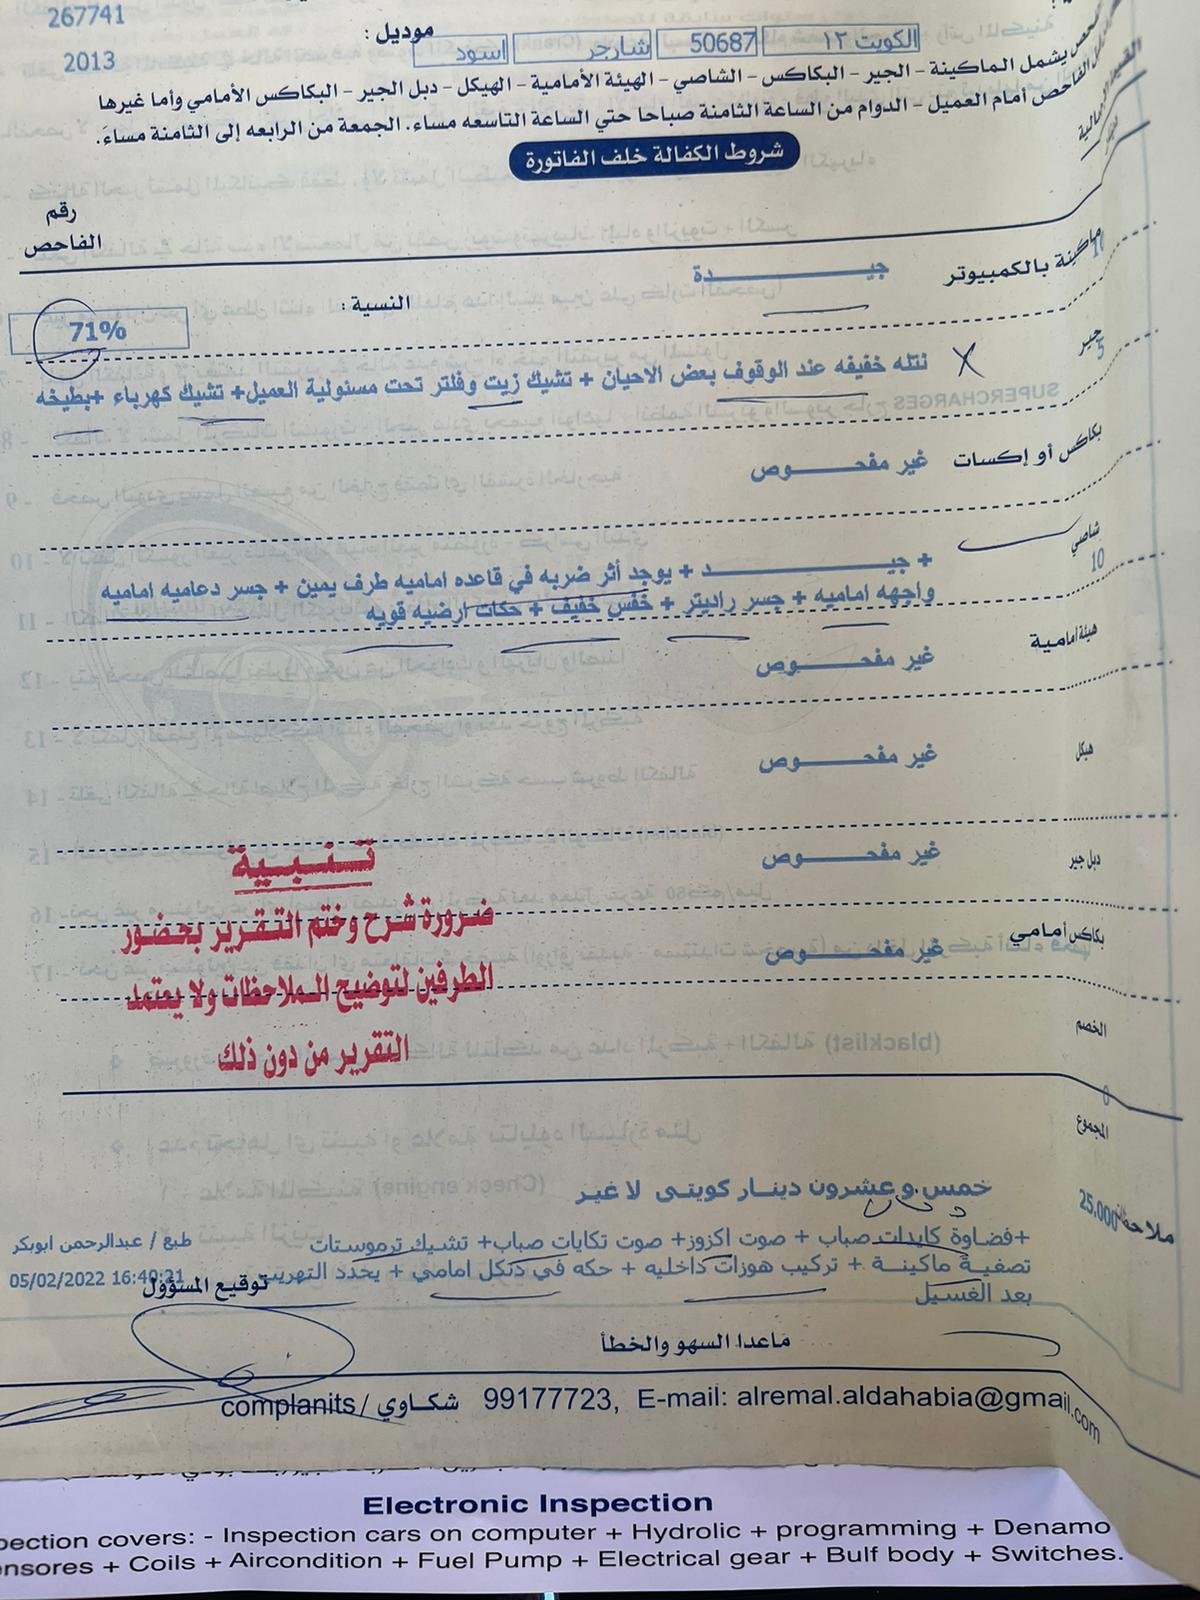 267741
موديل :
2013
الكويت ١٢ 50687 شارجر اسود
يشمل الماكينة - الجير - البكاكس - الشاصي - الهيئة الأمامية - الهيكل - دبل الجير - البكاكس الأمامي وأما غيرها
الفاحص أمام العميل - الدوام من الساعة الثامنة صباحا حتي الساعة التاسعه مساء. الجمعة من الرابعه إلى الثامنة مساءً.
شروط الكفالة خلف الفاتورة
رقم
الفاحص
ماكينة بالكمبيوتر جيــــــدة
النسبة :
71%
جير
5
نتله خفيفه عند الوقوف بعض الاحيان + تشيك زيت وفلتر تحت مسئولية العميل+ تشيك كهرباء +بطيخه
بكاكس أو إكسات غير مفحـــــوص
شاصي
10
+ جيــــــــــد + يوجد أثر ضربه في قاعده اماميه طرف يمين + جسر دعاميه اماميه
واجهه اماميه + جسر راديتر + خفس خفيف + حكات ارضيه قويه
هيئة أمامية غير مفحـــــوص
هيكل غير مفحـــــوص
دبل جير غير مفحـــــوص
بكاكس أمامي غير مفحـــــوص
تـنـبـيـة
ضرورة شرح وختم التقرير بحضور
الطرفين لتوضيح الملاحظات ولا يعتمد
التقرير من دون ذلك
الخصم
0
المجموع
25.000
خمس و عشرون دينـار كويتى لا غير
ملاحظات
+فضاوة كايدات صباب + صوت اكزوز+ صوت تكايات صباب+ تشيك ترموستات
طبع / عبدالرحمن ابوبكر
تصفية ماكينة + تركيب هوزات داخليه + حكه في دنكل امامي + يحدد التهريب
05/02/2022 16:40:21
توقيع المسؤول
بعد الغسيل
ماعدا السهو والخطأ
complanits / شكـاوي 99177723, E-mail: alremal.aldahabia@gmail.com
Electronic Inspection
pection covers: - Inspection cars on computer + Hydrolic + programming + Denamo
ensores + Coils + Aircondition + Fuel Pump + Electrical gear + Bulf body + Switches.